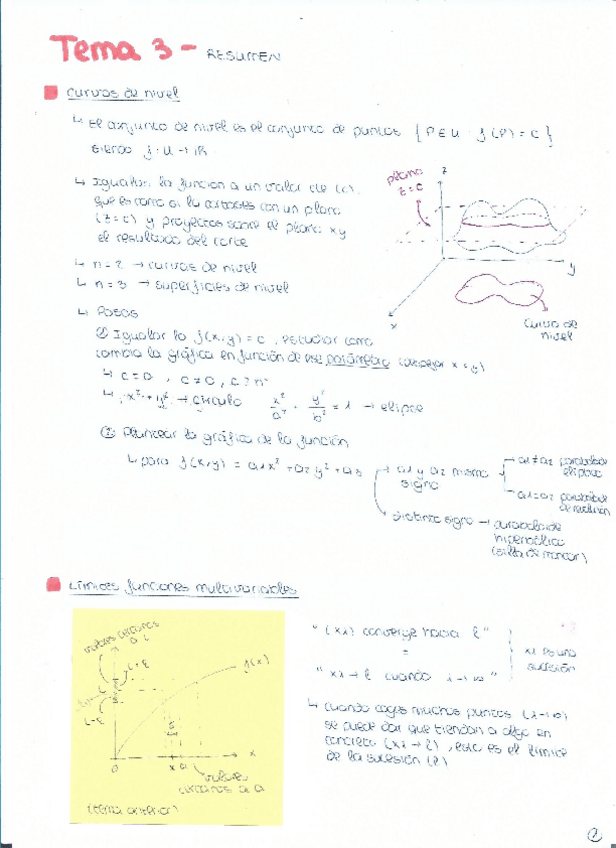 Tema 3 - RESUMEN
Curvas de nivel
↳ El conjunto de nivel es el conjunto de puntos { P ∈ U · f(P) = C }
siendo f: U → IR
↳ Igualar la función a un valor de (c),
que es como si la cortases con un plano
(z=c) y proyectas sobre el plano xy
el resultado del corte
plano
z=c
z
y
x
curva de
nivel
↳ n=2 → curvas de nivel
↳ n=3 → superficies de nivel
↳ Pasos
① Igualar la f(x,y) = c, estudiar como
cambia la gráfica en función de ese parámetro (despejar x e y)
↳ c=0, c≠0,
↳ x² + y² → círculo x²/a² · y²/b² = 1 → elipse
② Plantear la gráfica de la función
↳ para f(x,y) = a1x² + a2y² + a3
a1 y a2 mismo
signo
a1≠a2 paraboloide
elíptico
a1=a2 paraboloide
de revolución
distinto signo → paraboloide
hiperbólico
(silla de montar)
Límites funciones multivariables
valores cercanos
a L
L+ε
L
L-ε
f(x)
0
x
a
x
valores
cercanos a a
(tema anterior)
"(xλ) converge hacia l"
=
"xλ → l cuando λ→∞"
xλ es una
sucesión
↳ Cuando coges muchos puntos (λ→∞)
se puede dar que tiendan a algo en
concreto (xλ → l), esto es el límite
de la sucesión (l)